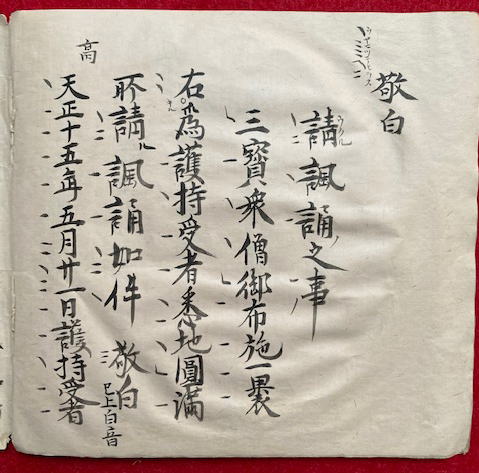 敬白
請諷誦之事
三寳衆僧御布施一裹
右為護持受者悉地圓滿
所請諷誦如件 敬白 已上白音
高
天正十五年五月廿一日護持受者